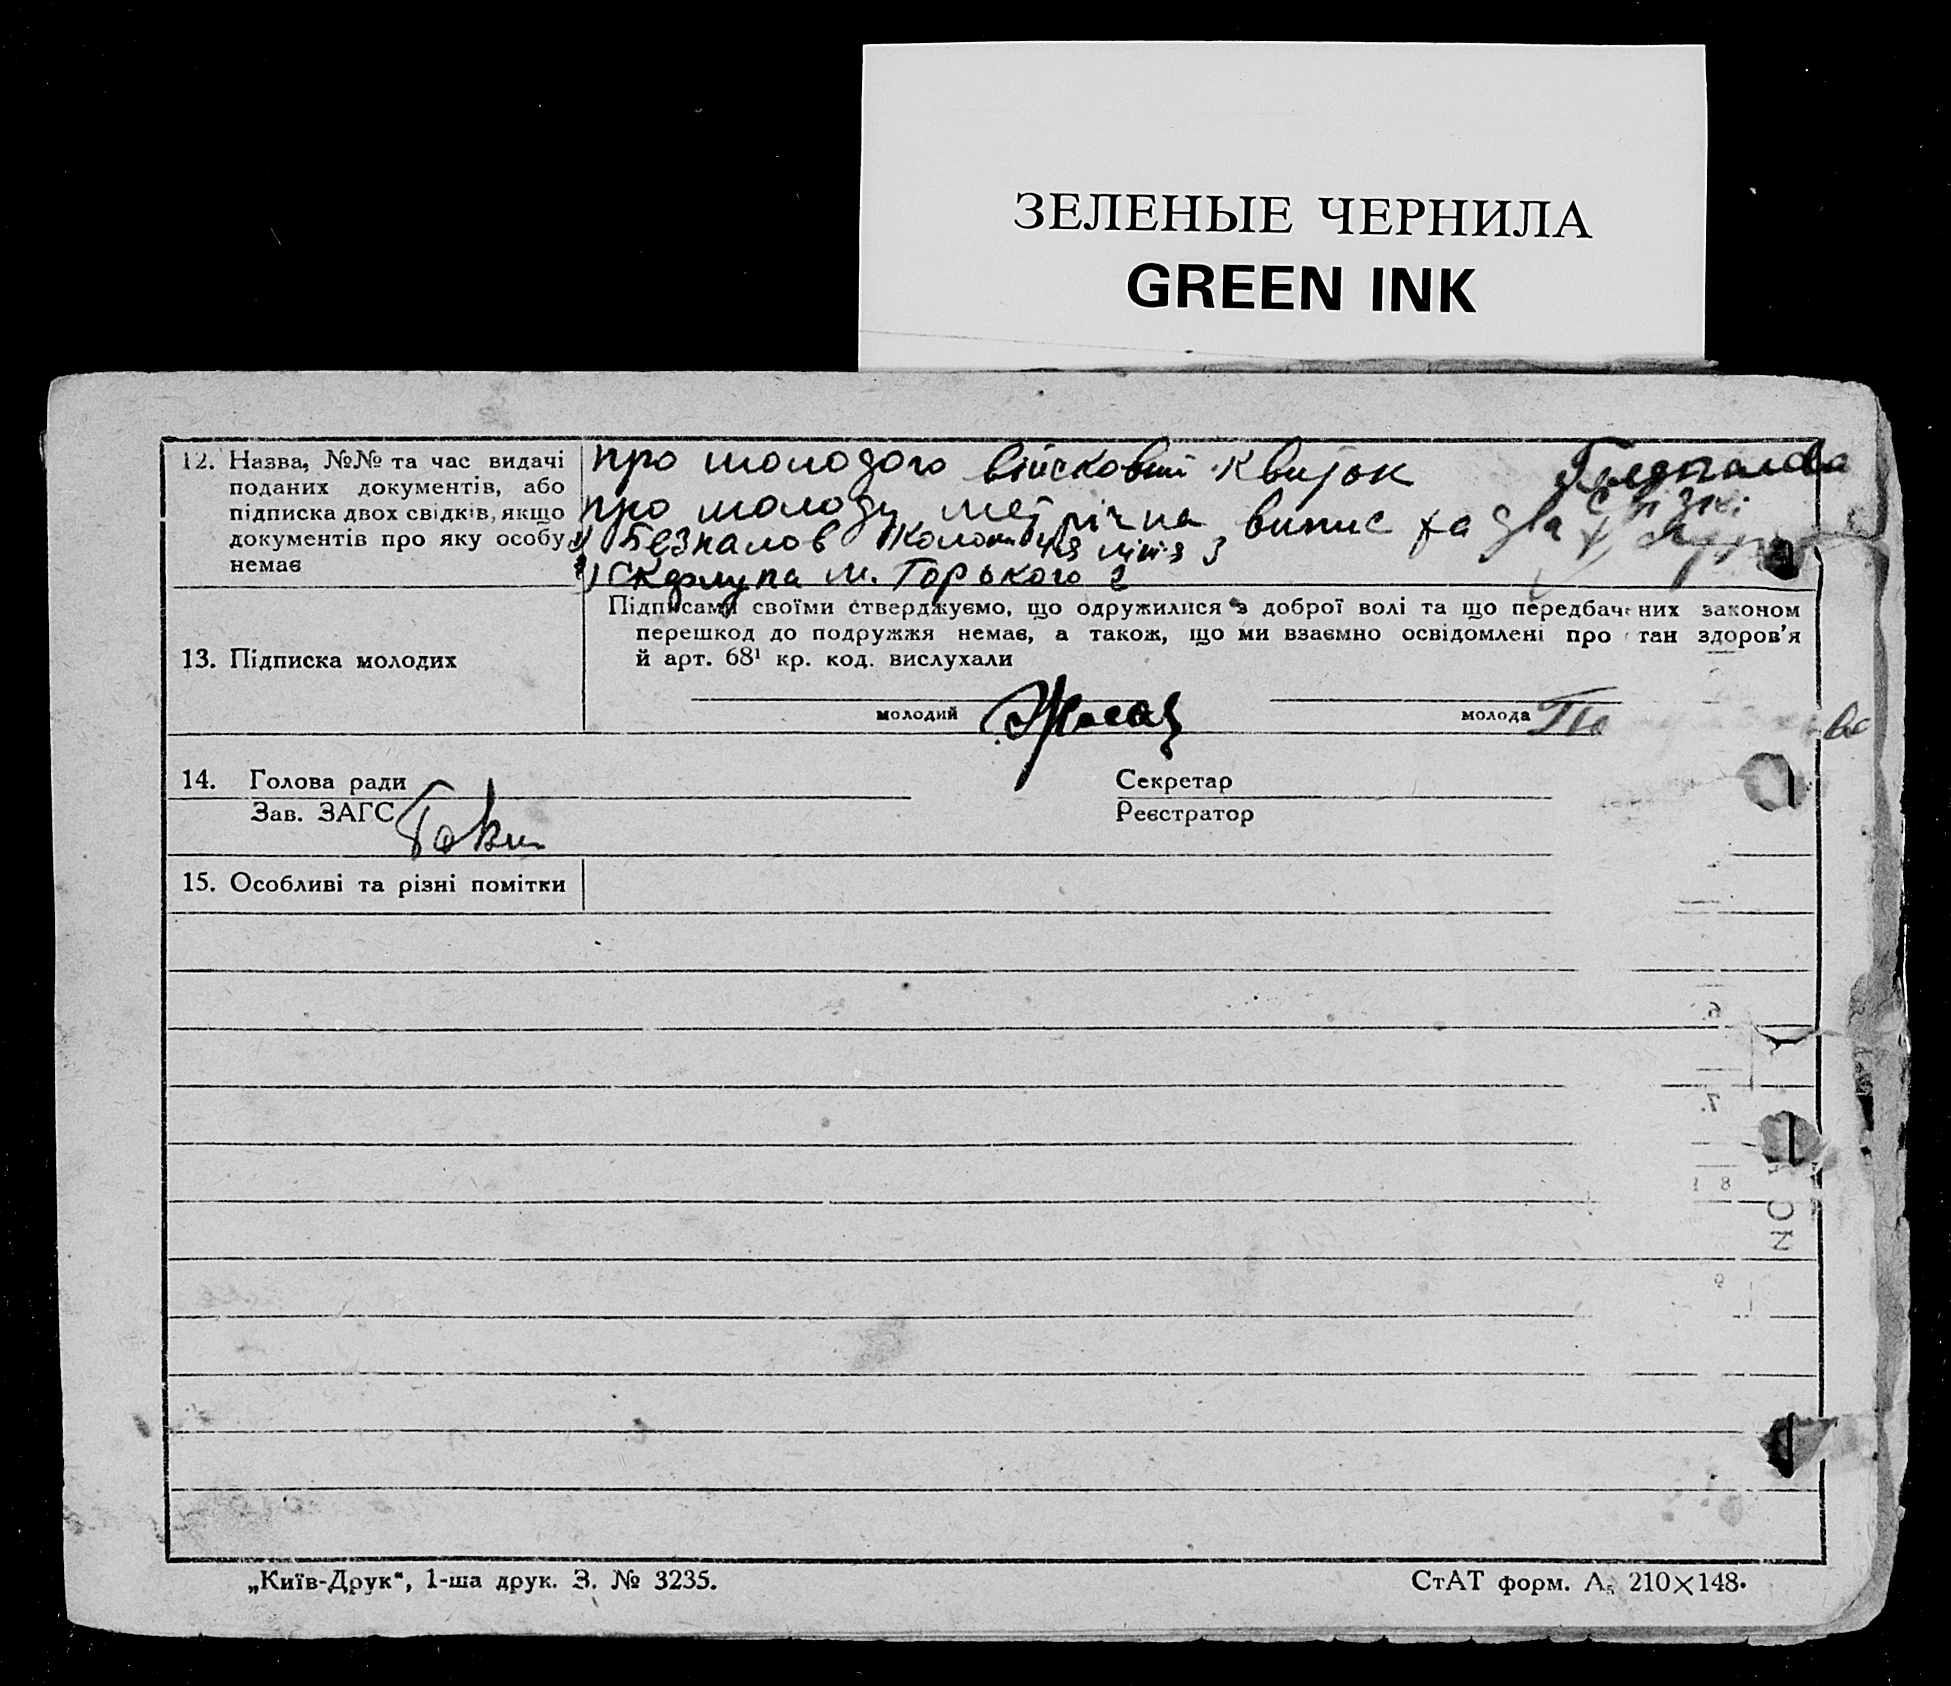 ЗЕЛЕНЫЕ ЧЕРНИЛА
GREEN INK
12. Назва, №№ та час видачі поданих документів, або підписка двох свідків, якщо документів про яку особу немає
про молодого військовий квиток
про молоду метрічна випис та два
1) Безпалов лінія 3
2) м. Горького 2
13. Підписка молодих
Підписами своїми стверджуємо, що одружилися з доброї волі та що передбачених законом
перешкод до подружжя немає, а також, що ми взаємно освідомлені про стан здоров'я
й арт. 68¹ кр. код. вислухали
молодий
молода
14. Голова ради
Секретар
Зав. ЗАГС
Реєстратор
15. Особливі та різні помітки
„Київ-Друк“, 1-ша друк. З. № 3235.
СтАТ форм. А₅ 210×148.